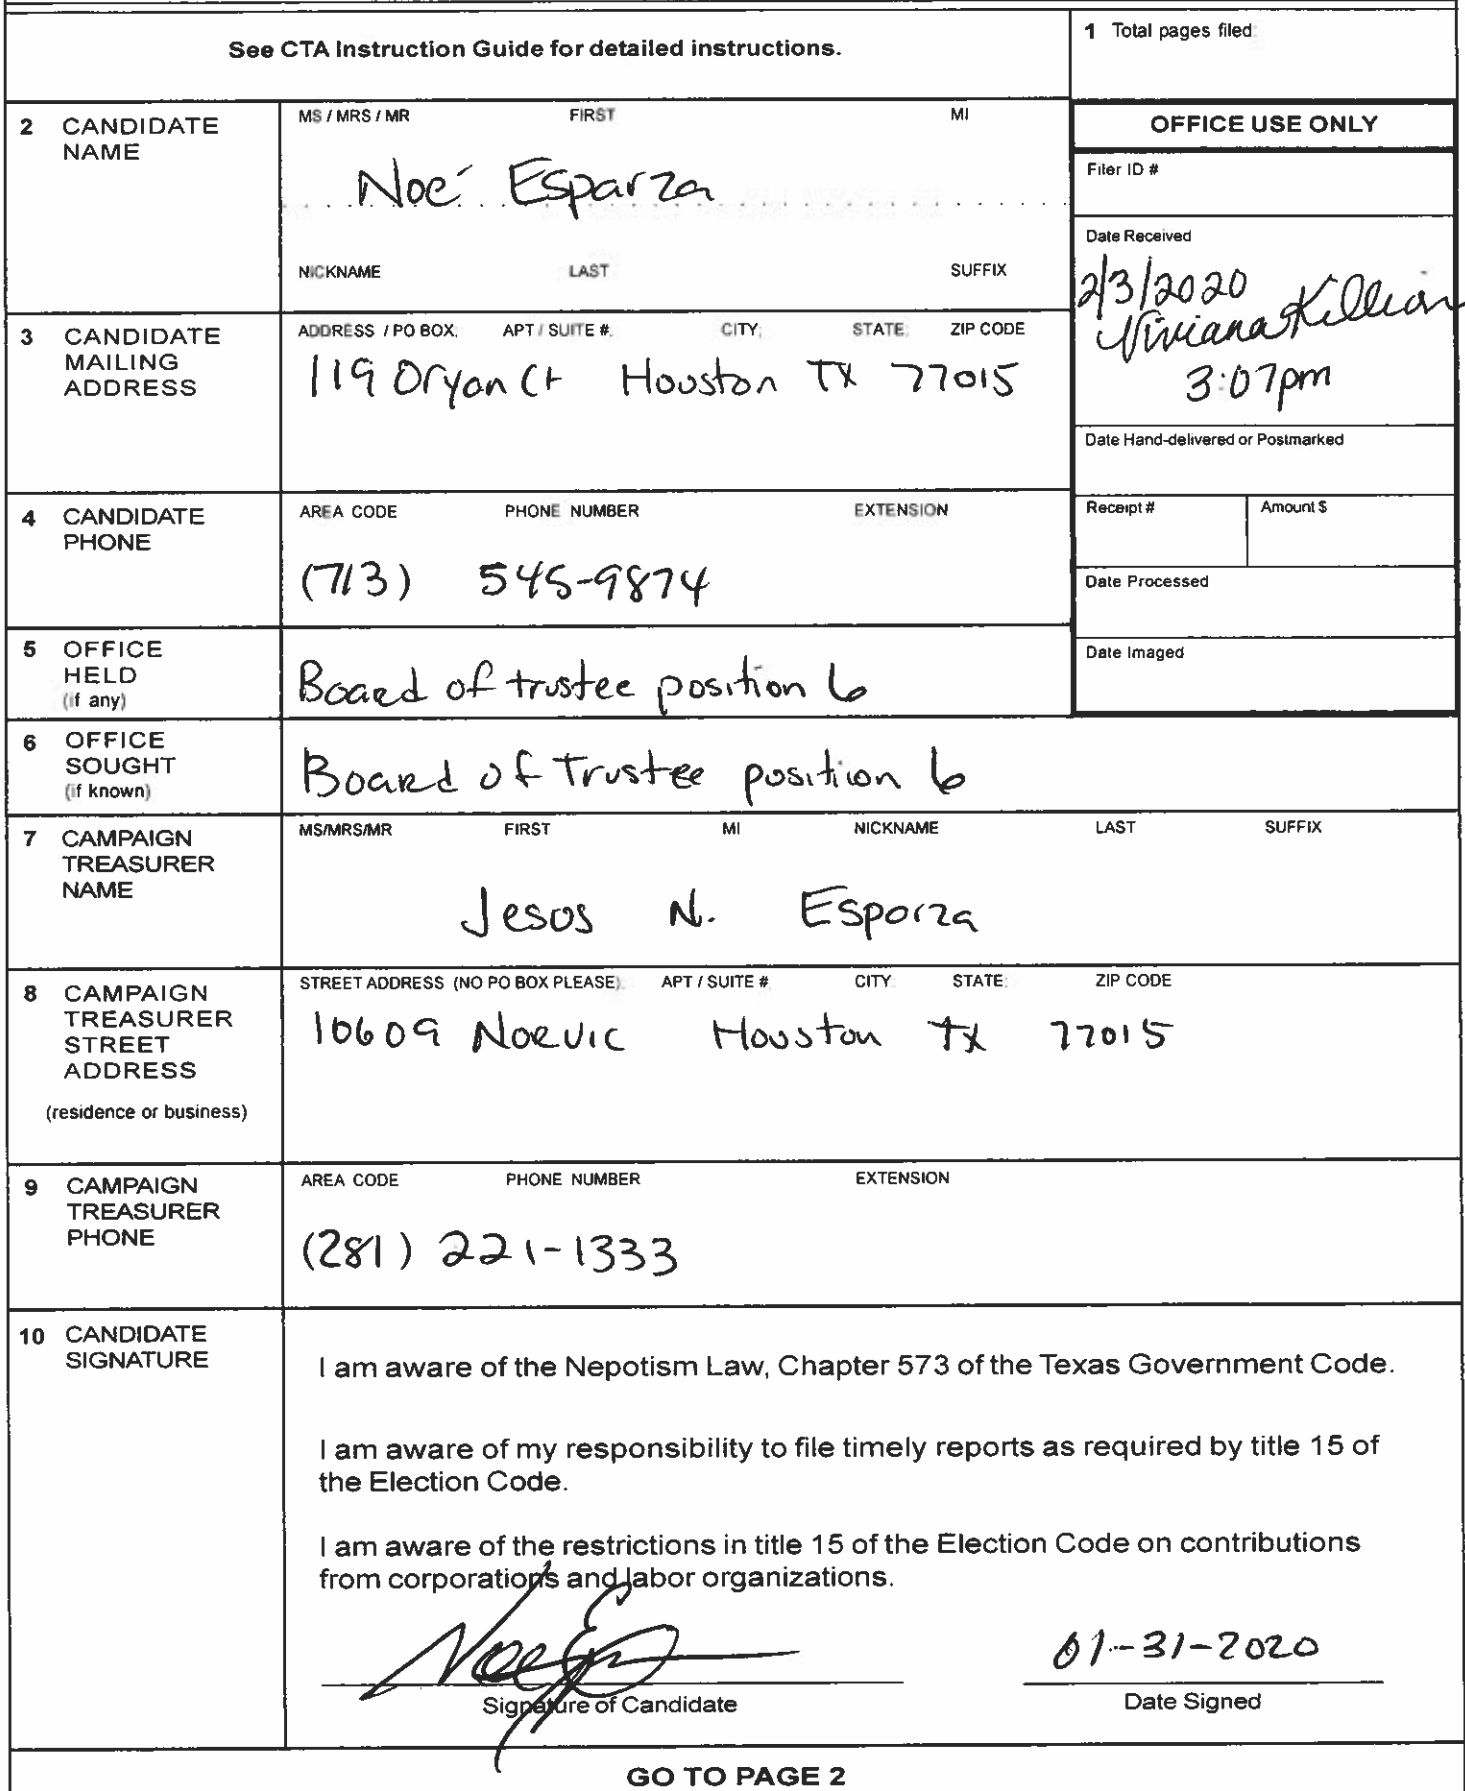 See CTA Instruction Guide for detailed instructions.
1 Total pages filed:
2 CANDIDATE NAME
MS / MRS / MR FIRST MI
Noé Esparza
NICKNAME LAST SUFFIX
OFFICE USE ONLY
Filer ID #
Date Received
2/3/2020
Viviana Killian
3:07pm
3 CANDIDATE MAILING ADDRESS
ADDRESS / PO BOX; APT / SUITE #; CITY; STATE; ZIP CODE
119 Oryan Ct Houston TX 77015
Date Hand-delivered or Postmarked
4 CANDIDATE PHONE
AREA CODE PHONE NUMBER EXTENSION
(713) 545-9874
Receipt # Amount $
Date Processed
Date Imaged
5 OFFICE HELD (if any)
Board of trustee position 6
6 OFFICE SOUGHT (if known)
Board of Trustee position 6
7 CAMPAIGN TREASURER NAME
MS/MRS/MR FIRST MI NICKNAME LAST SUFFIX
Jesus N. Esparza
8 CAMPAIGN TREASURER STREET ADDRESS
(residence or business)
STREET ADDRESS (NO PO BOX PLEASE); APT / SUITE # CITY; STATE; ZIP CODE
10609 Norvic Houston TX 77015
9 CAMPAIGN TREASURER PHONE
AREA CODE PHONE NUMBER EXTENSION
(281) 221-1333
10 CANDIDATE SIGNATURE
I am aware of the Nepotism Law, Chapter 573 of the Texas Government Code.
I am aware of my responsibility to file timely reports as required by title 15 of
the Election Code.
I am aware of the restrictions in title 15 of the Election Code on contributions
from corporations and labor organizations.
01-31-2020
Signature of Candidate Date Signed
GO TO PAGE 2